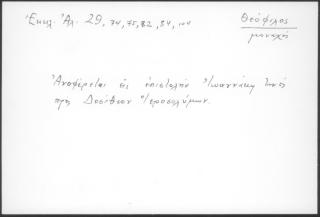 Ἐκκλ. Ἀλ. 29, 74, 75, 82, 84, 104
Θεόφιλος
μοναχός
Ἀναφέρεται εἰς ἐπιστολὴν Ἰωαννίκη τινός
πρὸς Δοσίθεον Ἱεροσολύμων.